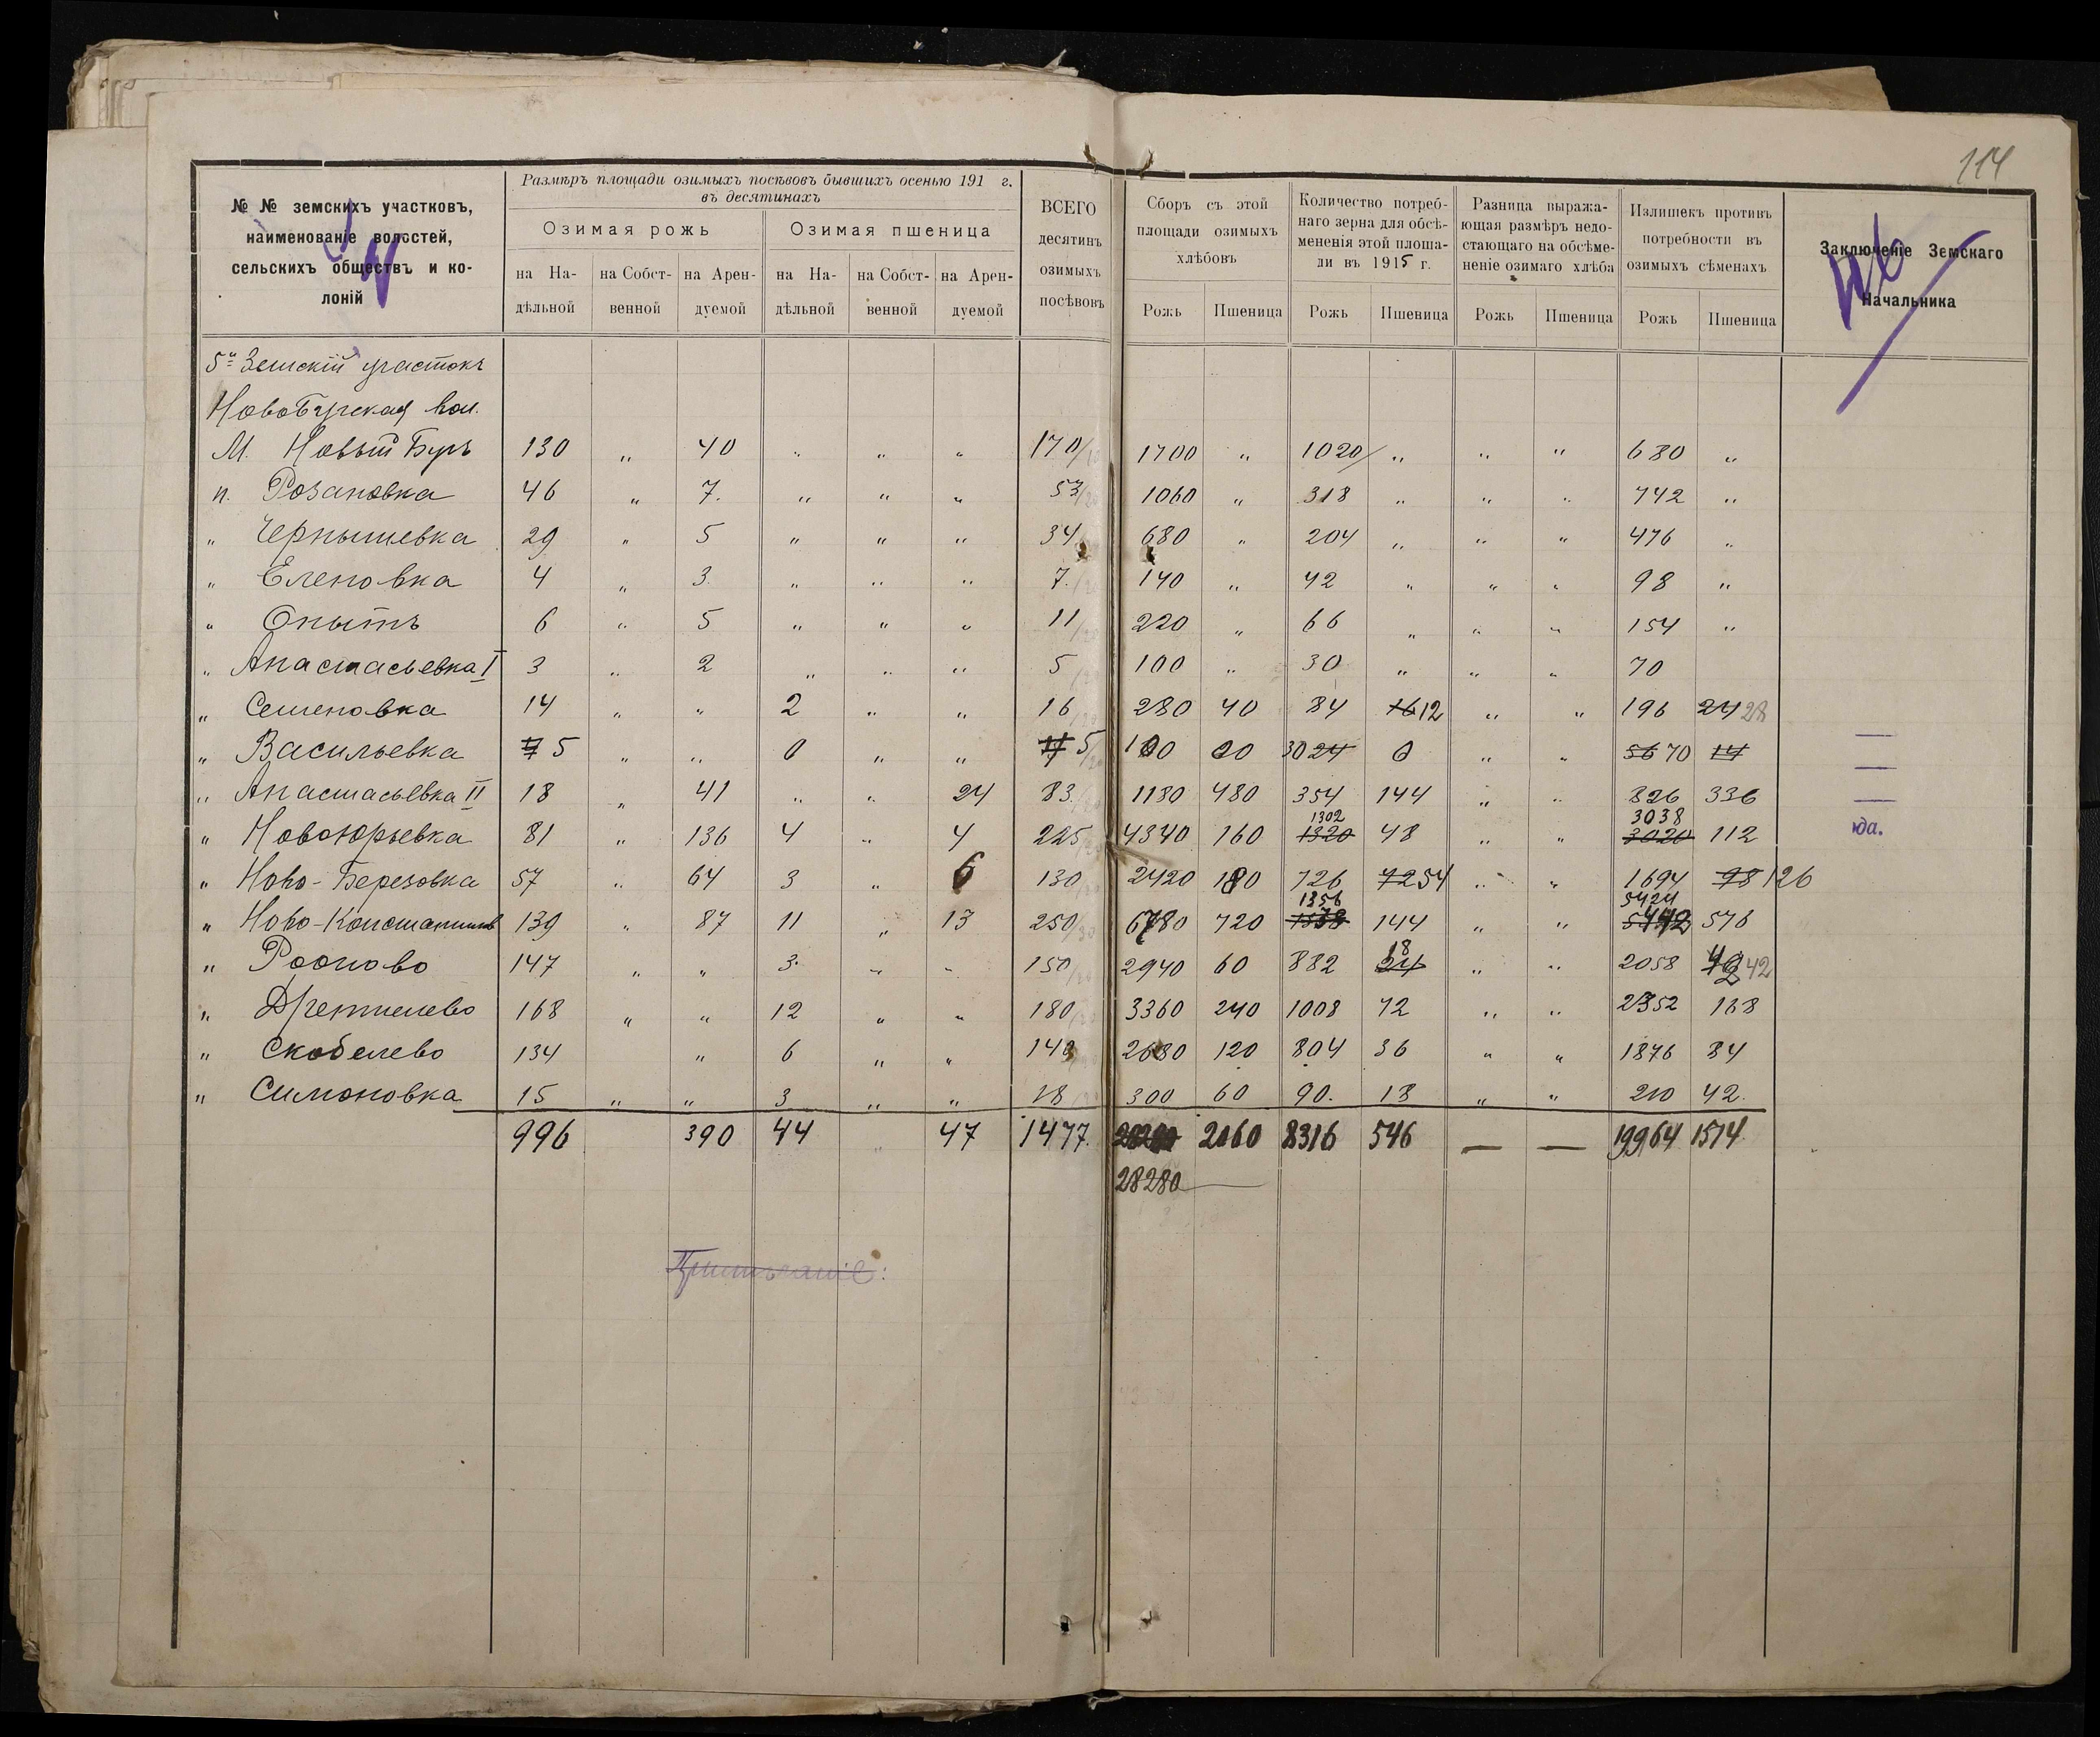 114
№ № земскихъ участковъ,
наименованіе волостей,
сельскихъ обществъ и ко-
лоній
Размѣръ площади озимыхъ посѣвовъ бывшихъ осенью 191 г.
въ десятинахъ
Озимая рожь
Озимая пшеница
на На-
дѣльной
на Собст-
венной
на Арен-
дуемой
на На-
дѣльной
на Собст-
венной
на Арен-
дуемой
ВСЕГО
десятинъ
озимыхъ
посѣвовъ
Сборъ съ этой
площади озимыхъ
хлѣбовъ
Рожь Пшеница
Количество потреб-
наго зерна для обсѣ-
мененія этой площа-
ди въ 1915 г.
Рожь Пшеница
Разница выража-
ющая размѣръ недо-
стающаго на обсѣме-
неніе озимаго хлѣба
Рожь Пшеница
Излишекъ противъ
потребности въ
озимыхъ сѣменахъ
Рожь Пшеница
Заключеніе Земскаго
Начальника
5й Земскій участокъ
НовоБугская вол.
М. Новый Бугъ 130 „ 40 „ „ „ 170 1700 „ 1020 „ „ „ 680 „
п. Розановка 46 „ 7. „ „ „ 53 1060 „ 318 „ „ „ 742 „
„ Чернышевка 29 „ 5 „ „ „ 34 680 „ 204 „ „ „ 476 „
„ Еленовка 4 „ 3 „ „ „ 7. 140 „ 42 „ „ „ 98 „
„ Опытъ 6 „ 5 „ „ „ 11 220 „ 66 „ „ „ 154 „
„ Анастасьевка I 3 „ 2 „ „ „ 5 100 „ 30 „ „ „ 70
„ Семеновка 14 „ „ 2 „ „ 16 280 40 84 16 12 „ „ 196 24 28
„ Васильевка 5 „ „ 0 „ „ 5 100 00 30 24 0 „ „ 56 70 14
„ Анастасьевка II 18 „ 41 „ „ 24 83. 1180 480 354 144 „ „ 826 336
1302 3038
„ Новоюрьевка 81 „ 136 4 „ 4 225 4340 160 1320 48 „ „ 3020 112
„ Ново-Березовка 57 „ 64 3 „ 6 130 2420 180 726 72 54 „ „ 1694 98 126
1356 5424
„ Ново-Константинов 139 „ 87 11 „ 13 250 6780 720 144 „ „ 576
18
„ 147 „ „ 3. „ „ 150 2940 60 882 24 „ „ 2058 42
„ 168 „ „ 12 „ „ 180 3360 240 1008 72 „ „ 2352 168
„ Скобелево 134 „ 6 „ „ 140 2680 120 804 36 „ „ 1876 84
„ Симоновка 15 „ „ 3 „ „ 18 300 60 90. 18 „ „ 210 42.
996 390 44 „ 47 1477. 2060 8316 546 — — 19964 1514
28280
Примѣчаніе: